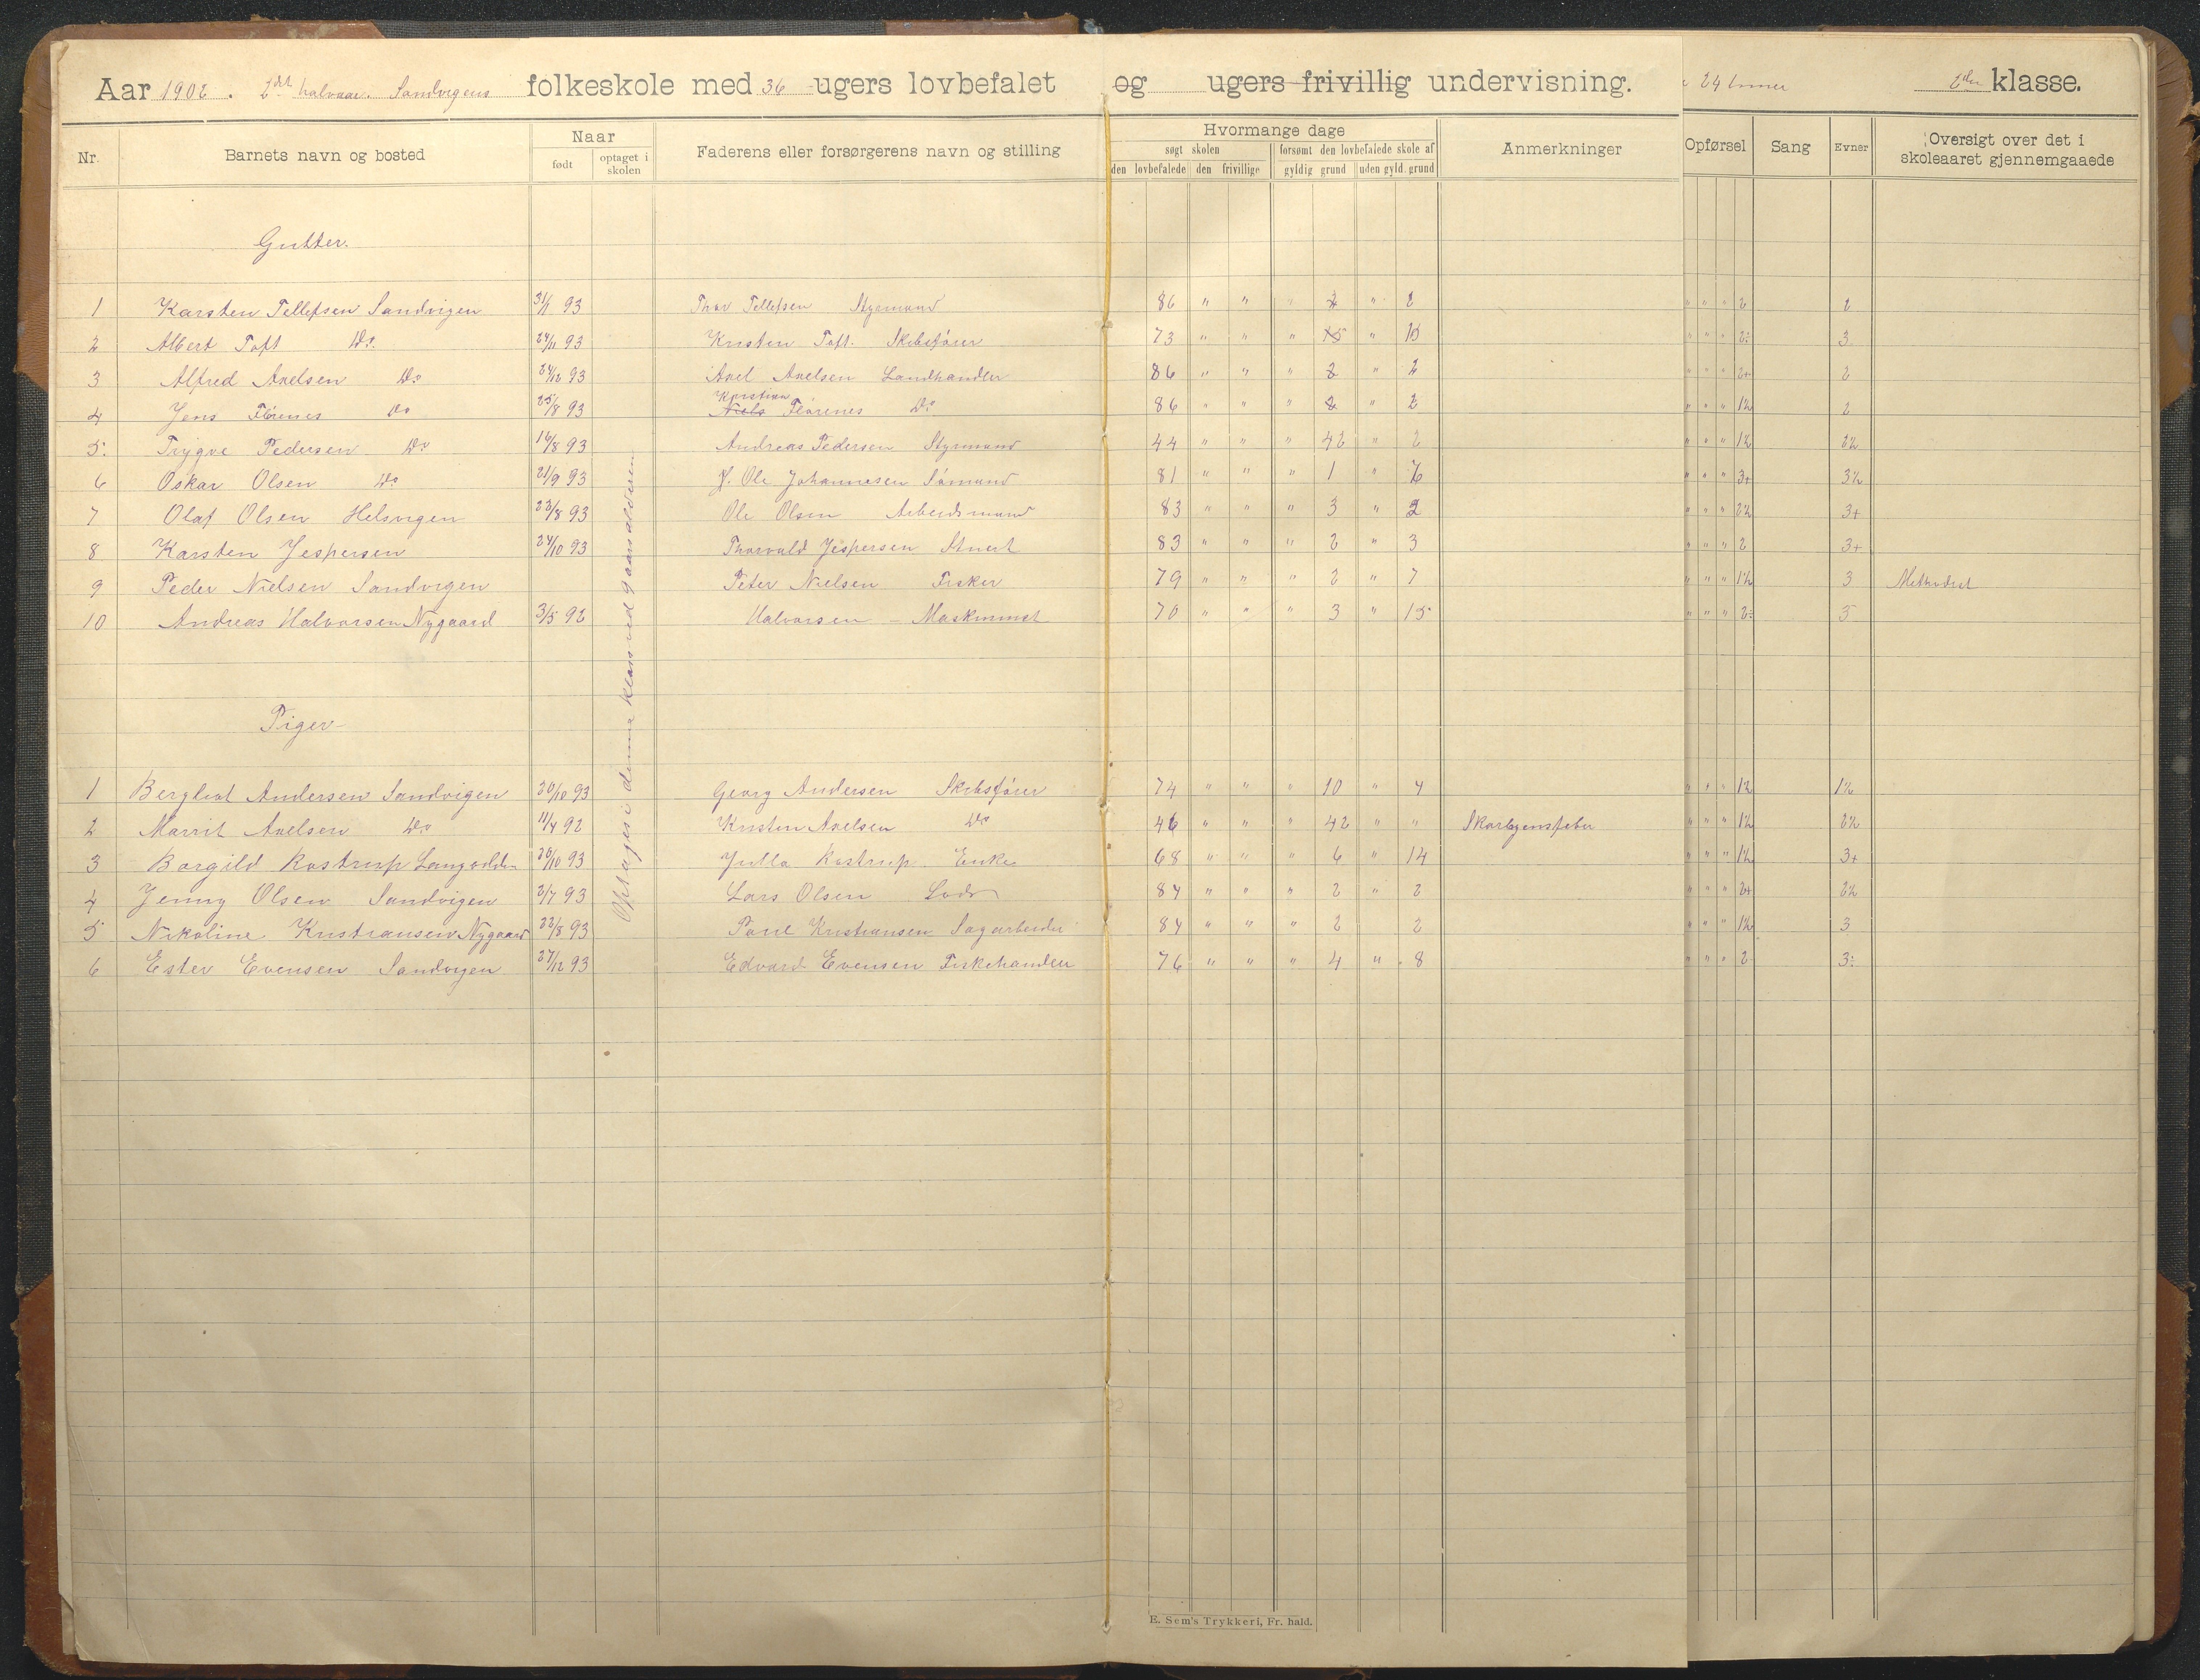 Aar 1902. 2det halvaar. Sandvigens folkeskole med 36 ugers lovbefalet og ugers frivillig undervisning. 24 timer 2den klasse.
Nr. Barnets navn og bosted Naar født optaget i skolen Faderens eller forsørgerens navn og stilling Hvormange dage søgt skolen den lovbefalede den frivillige forsømt den lovbefalede skole af gyldig grund uden gyld. grund Anmerkninger Opførsel Sang Evner Oversigt over det i skoleaaret gjennemgaaede
Gutter.
1 Karsten Tellefsen Sandvigen 31/1 93 Thor Tellefsen Styrmand 86 " " " 2 " 2 " " " 2 2
2 Albert Toft Do. 24/11 93 Kristen Toft. Skibsfører 73 " " " 15 " 15 " " " 2÷ 3
3 Alfred Axelsen Do 24/12 93 Axel Axelsen Landhandler 86 " " " 2 " 2 " " " 2+ 2
4 Jens Florenes Do 25/8 93 Kristian Niels Florenes Do 86 " " " 2 " 2 " " " 1½ 2
5. Trygve Pedersen Do 16/8 93 Andreas Pedersen Styrmand 44 " " " 42 " 2 " " " 1½ 2½
6 Oskar Olsen Do 21/9 93 J. Ole Johannesen Sømand 81 " " " 1 " 7 " " " 3+ 3½
7 Olaf Olsen Helsvigen 23/8 93 Ole Olsen Arbeidsmand 83 " " " 3 " 2 " " " 2½ 3+
8 Karsten Jespersen 24/10 93 Thorvald Jespersen Stuert 83 " " " 2 " 3 " " " 2 3+
9 Peder Nielsen Sandvigen Peter Nielsen Fisker 79 " " " 2 " 7 " " " 1½ 3 Methodist
10 Andreas Halvorsen Nygaard 3/5 92 Halvorsen - Maskinist 70 " " " 3 " 15 " " " 2÷ 5
Optages i denne klasse ved 9 aarsalderen
Piger
1 Bergliot Andersen Sandvigen 20/10 93 Georg Andersen Skibsfører 74 " " " 10 " 4 " " " 1½ 1½
2 Marrit Axelsen Do 11/4 92 Kristen Axelsen Do 46 " " " 42 " " Skarlagensfeber " " " 1½ 2½
3 Borgild Rostrup Langodden 26/10 93 Julla Rostrup Enke 68 " " " 6 " 14 " " " 1½ 3+
4 Jenny Olsen Sandvigen 2/7 93 Lars Olsen Lods 84 " " " 2 " 2 " " " 2+ 2½
5 Nikoline Kristiansen Nygaard 22/8 93 Poul Kristiansen Sagarbeider 84 " " " 2 2 " " " 1½ 3
6 Ester Evensen Sandvigen 27/12 93 Edvard Evensen Fiskehandler 76 " " " 4 " 8 " " " 2 3÷
E. Sem's Trykkeri, Fr. hald.